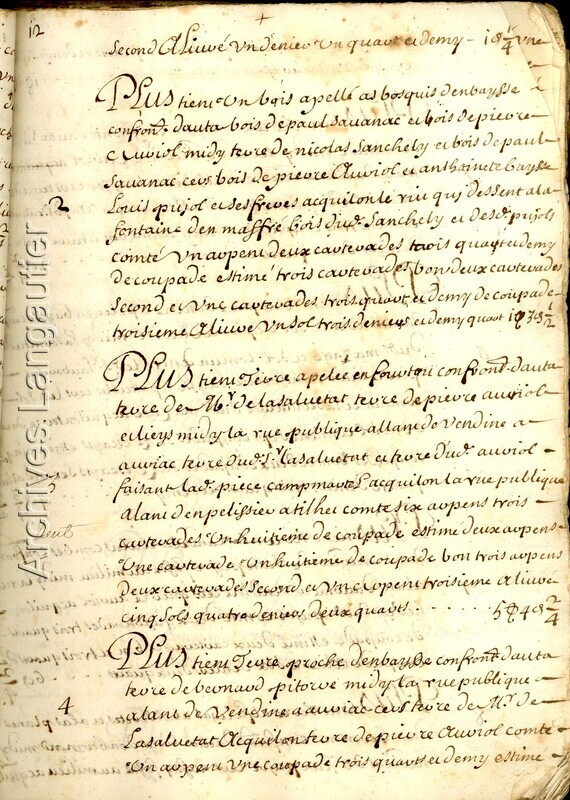 12
second Aliuré Un denier Un quart et demy - 1 d 1/4 Une
Plus tient Un bois apellé as bosquis denbaysse
confront. dauta bois de paul Sauanac et bois de pierre
Auriol midy terre de nicolas Sanchely et bois de paul
Sauanac cers bois de pierre Auriol et anthoinete baysse
Louis pujol et ses freres acquilon le riu qui dessent a la
fontaine den maffre bois dud. Sanchely et desd. pujols
comté Un arpent deux carterades trois quart et demy
de coupade estimé trois carterades bon deux carterades
second et Une carterades trois quart et demy de coupade
troisieme Aliuré Un sol trois deniers et demy quart
2
Plus tient Terre apelée en fourtou confront. dauta
terre de Mr. de lasaluetat terre de pierre auriol
et lieys midy la rue publique allant de Vendine a
auriac terre dud. Sr. lasaluetat et terre dud. auriol
faisant lad. piece campmartes acquilon la rue publique
alant denpelissier a tilhet comte six arpens trois
carterades Un huitieme de coupade estimé deux arpens
Une carterade Un huitieme de coupade bon trois arpens
deux carterades second et Un arpent troisieme Aliuré
cinq sols quatre deniers deux quarts . . . . . . 5 s 4 d 2/4
3
Plus tient Terre proche denbaysse confront. dauta
terre de bernard pitorre midy la rue publique
alant de Vendine a auriac cers terre de Mr. de
Lasaluetat Acquilon terre de pierre Auriol comte
Un arpent Une coupade trois quarts et demy estimé
4
Archives Langautier